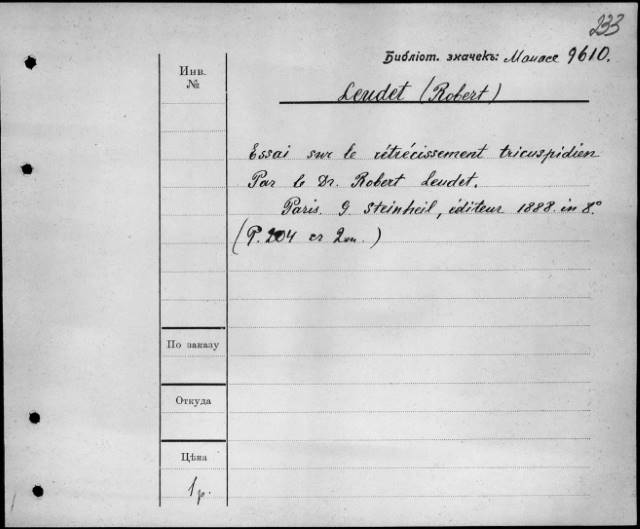 233
Библіот. значекъ: Манасе 9610.
Инв.
№
Leudet (Robert)
Essai sur le rétrécissement tricuspidien
Par le Dr. Robert Leudet.
Paris. G. Steinheil, éditeur 1888. in 8.°
(P. 204 )
По заказу
Откуда
Цѣна
1р.